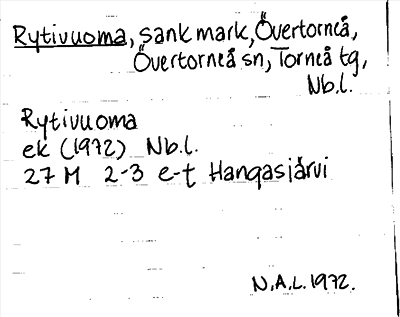 Rytivuoma, sank mark, Övertorneå,
Övertorneå sn, Torneå tg,
Nb.l.
Rytivuoma
ek (1972) Nb.l.
27 M 2-3 e-t Hangasjärvi
N.A.L. 1972.